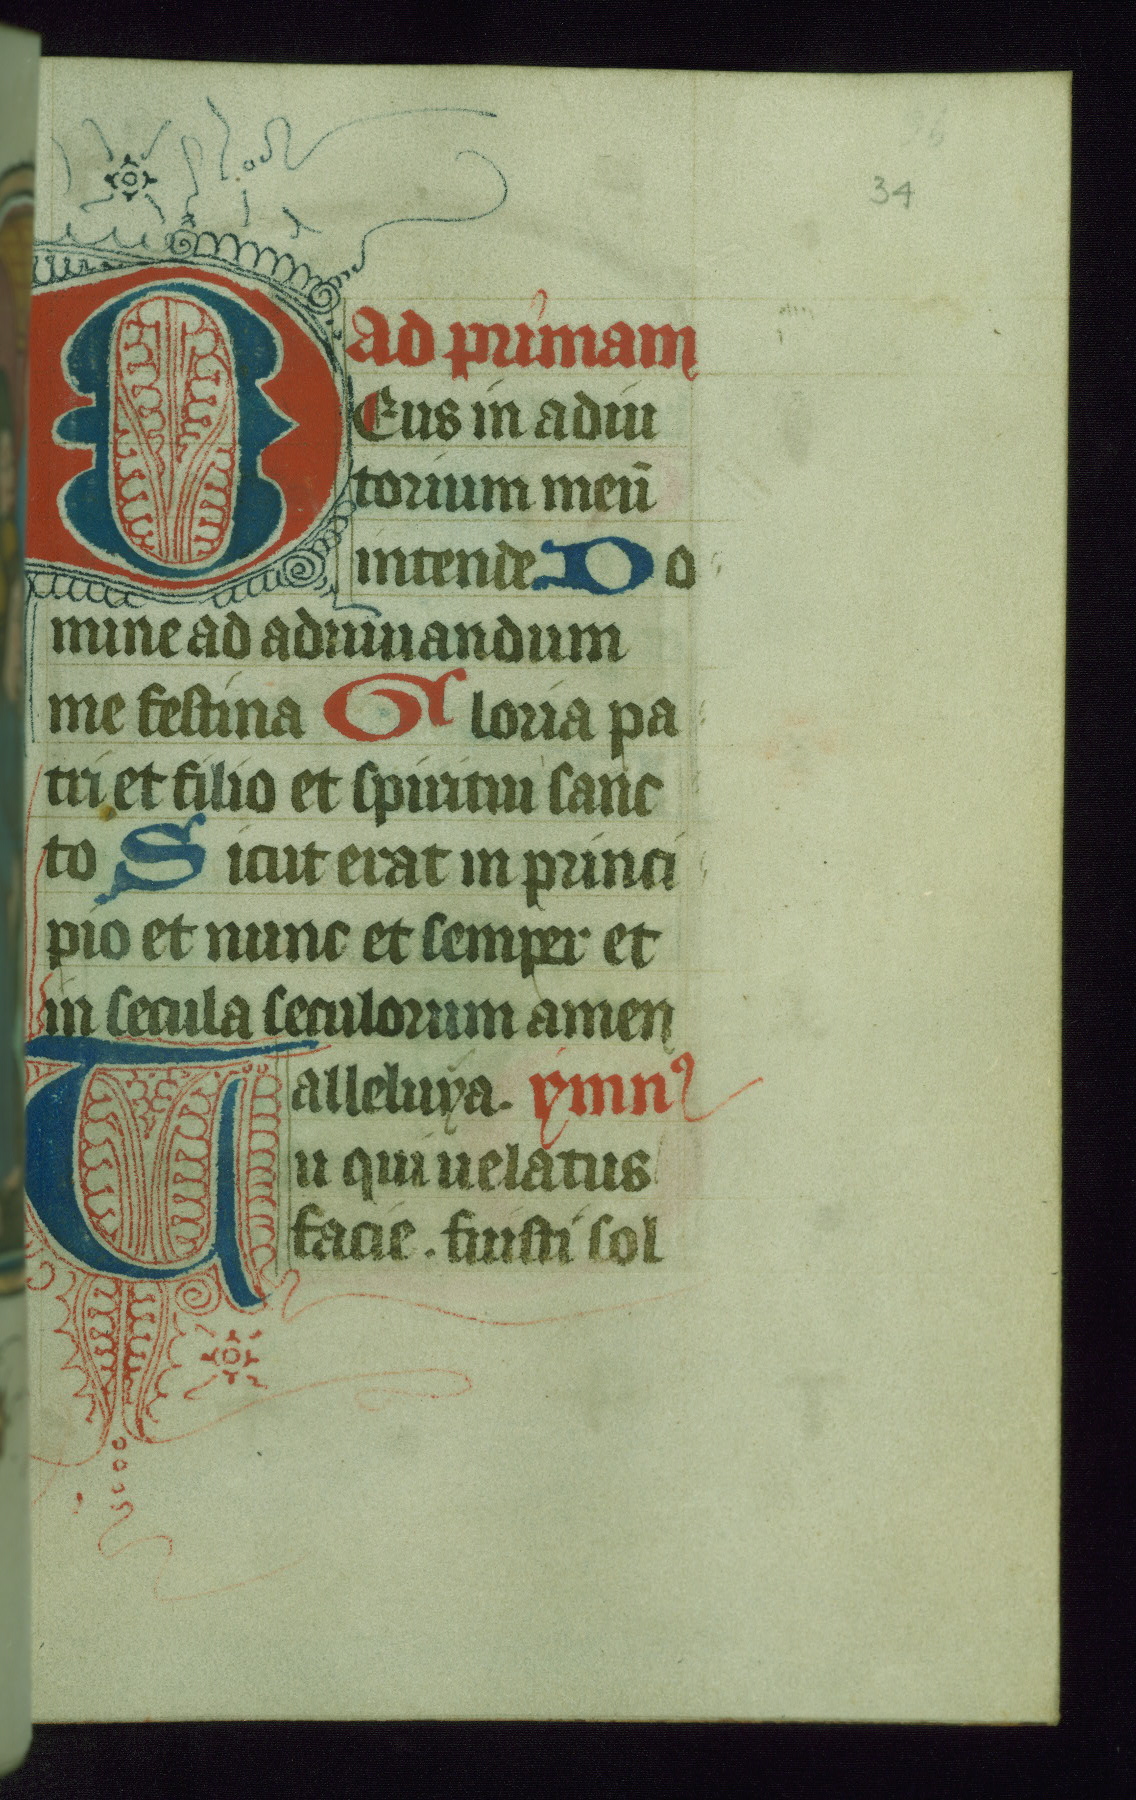 34
ad primam
DEus in adiu
torium meū
intende Do
mine ad adiuuandum
me festina Gloria pa
tri et filio et spiritui sanc
to Sicut erat in princi
pio et nunc et semper et
in secula seculorum amen
alleluya. ymnꝰ
Tu qui uelatus
facie. fuisti sol